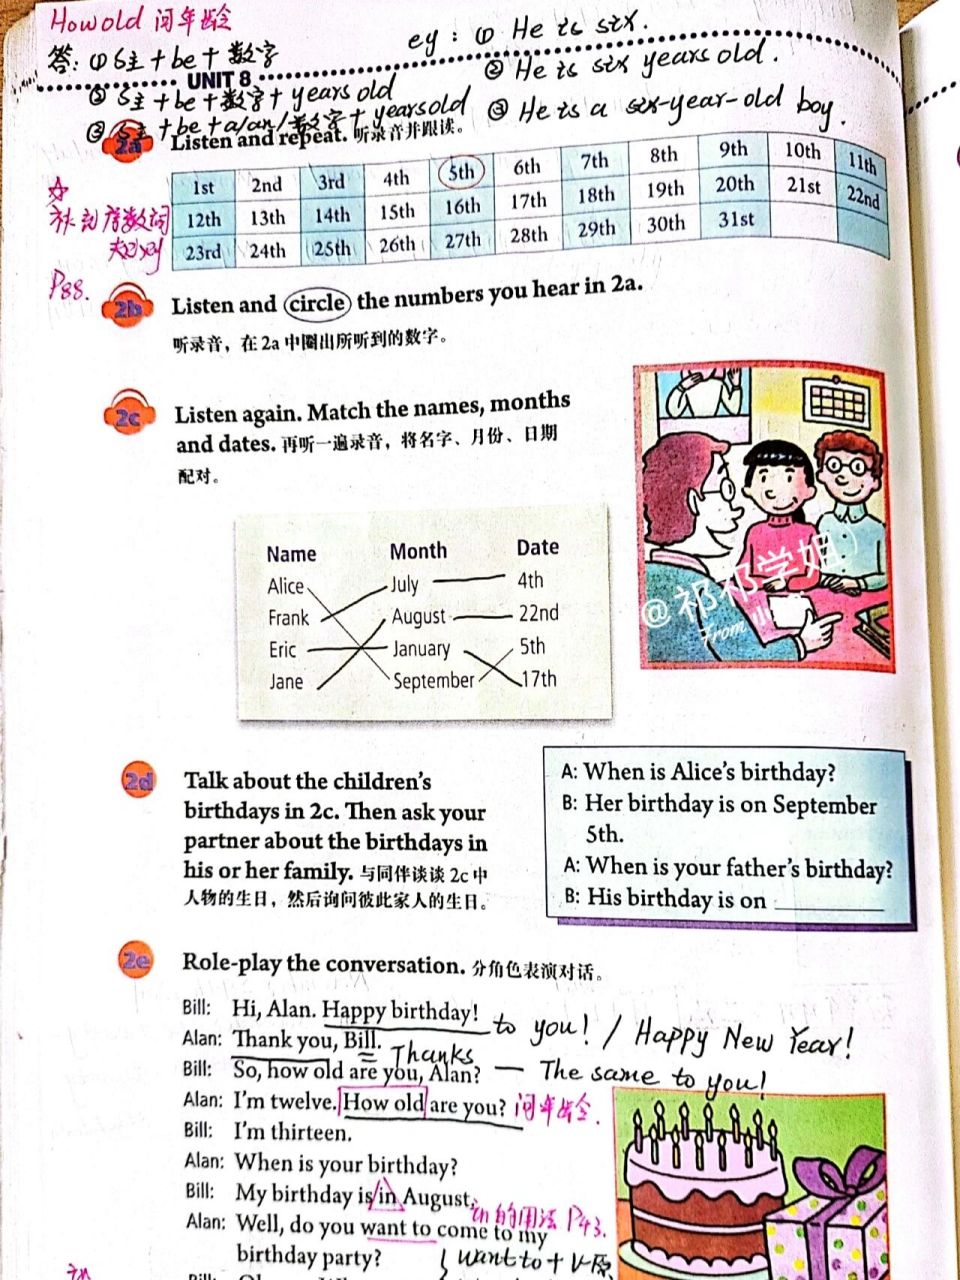 How old 问年龄
答: ① S主 + be + 数字
ey: ① He is six.
UNIT 8
② S主 + be + 数字 + years old
② He is six years old.
③ S主 + be + a/an/数字 + yearsold
③ He is a six-year-old boy.
2a Listen and repeat. 听录音并跟读。
1st 2nd 3rd 4th 5th 6th 7th 8th 9th 10th 11th
12th 13th 14th 15th 16th 17th 18th 19th 20th 21st 22nd
23rd 24th 25th 26th 27th 28th 29th 30th 31st
序数词
P88.
2b Listen and circle the numbers you hear in 2a.
听录音，在 2a 中圈出所听到的数字。
2c Listen again. Match the names, months
and dates. 再听一遍录音，将名字、月份、日期
配对。
Name Month Date
Alice July 4th
Frank August 22nd
Eric January 5th
Jane September 17th
@祁祁学姐
From 小
2d Talk about the children's
birthdays in 2c. Then ask your
partner about the birthdays in
his or her family. 与同伴谈谈 2c 中
人物的生日，然后询问彼此家人的生日。
A: When is Alice's birthday?
B: Her birthday is on September
5th.
A: When is your father's birthday?
B: His birthday is on
2e Role-play the conversation. 分角色表演对话。
Bill: Hi, Alan. Happy birthday! to you! / Happy New Year!
Alan: Thank you, Bill. Thanks
Bill: So, how old are you, Alan? — The same to you!
Alan: I'm twelve. How old are you? 问年龄.
Bill: I'm thirteen.
Alan: When is your birthday?
Bill: My birthday is in August. in 的用法 P43.
Alan: Well, do you want to come to my
birthday party? want to + V-原